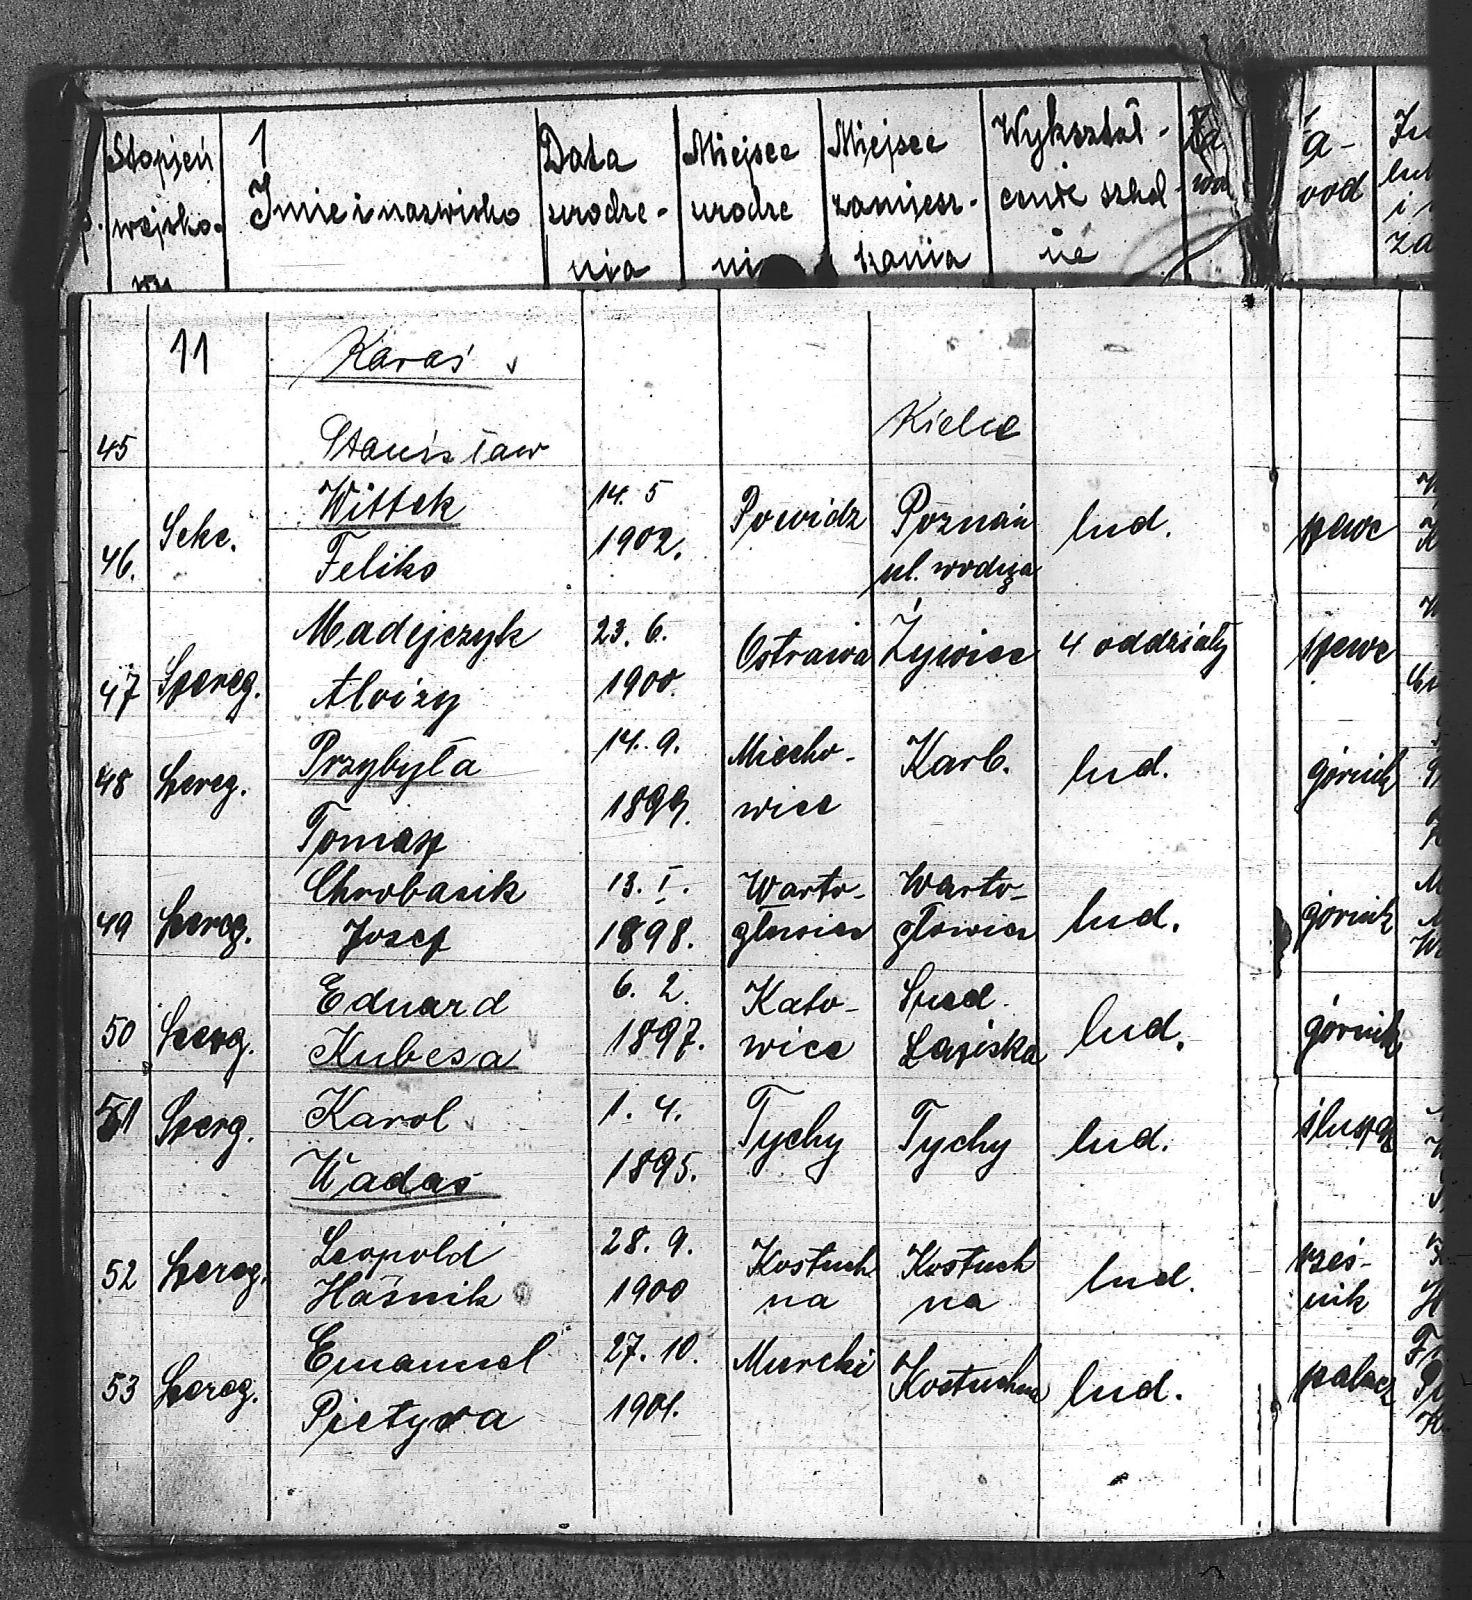 Stopień
wojsko-
wy
1
Imie i nazwisko
Data
urodze-
nia
Miejsce
urodze
ni
Miejsce
zamiesz-
kania
Wykształ-
cenie szkol-
ne
Za
wo
a-
vod
lub
i
za
11
Karaś
45
Stanisław
Kielce
46.
Sekc.
Wittek
Feliks
14. 5
1902.
Powidz
Poznań
ul. wodna
lud.
szewc
47
Szereg.
Madejczyk
Aloizy
23. 6.
1900.
Ostrawa
Żywiec
4 oddziały
szewc
48
Szereg.
Przybyła
Tomasz
14. 9.
1899.
Miecho-
wice
Karb.
lud.
górnik
49
Szereg.
Chrobasik
Josef
13. I.
1898.
Warto-
głowice
Warto-
głowice
lud.
górnik
50
Szerg.
Eduard
Kubesa
6. 2.
1897.
Kato-
wice
Sued.
Łaziska
lud.
górnik
51
Szerg.
Karol
Wadas
1. 4.
1895.
Tychy
Tychy
lud.
52
Szereg.
Leopold
Hośnik
28. 9.
1900
Kostuch
na
Kostuch
na
lud.
rzeź-
nik
53
Szereg.
Emanuel
Pietyra
27. 10.
1901.
Murcki
Kostuchna
lud.
palacz